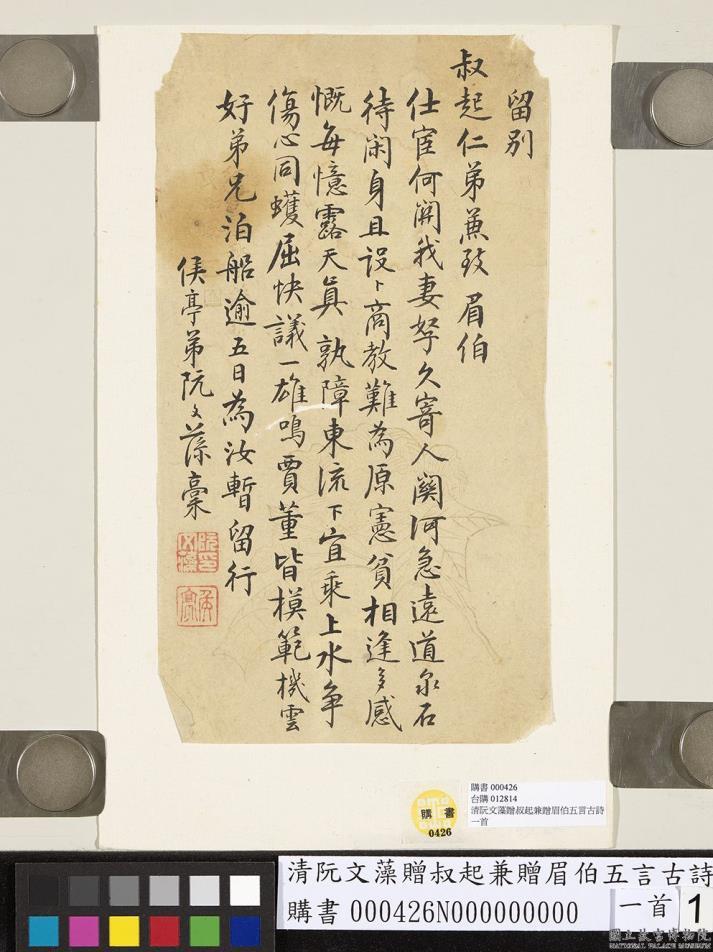 留别
叔起仁弟兼致 眉伯
仕宦何關我妻孥久寄人關河急遠道泉石
待闲身且設卜商教難為原憲貧相逢多感
慨每憶露天真 孰障東流下宜乘上水争
傷心同蠖屈快議一雄鳴賈董皆模範機雲
好弟兄泊船逾五日為汝暫留行
侯亭弟阮文藻稾
購書 000426
台購 012814
清阮文藻贈叔起兼贈眉伯五言古詩
一首
購書
0426
清阮文藻贈叔起兼贈眉伯五言古詩
一首
購書 000426N000000000
1
國立故宮博物院
NATIONAL PALACE MUSEUM